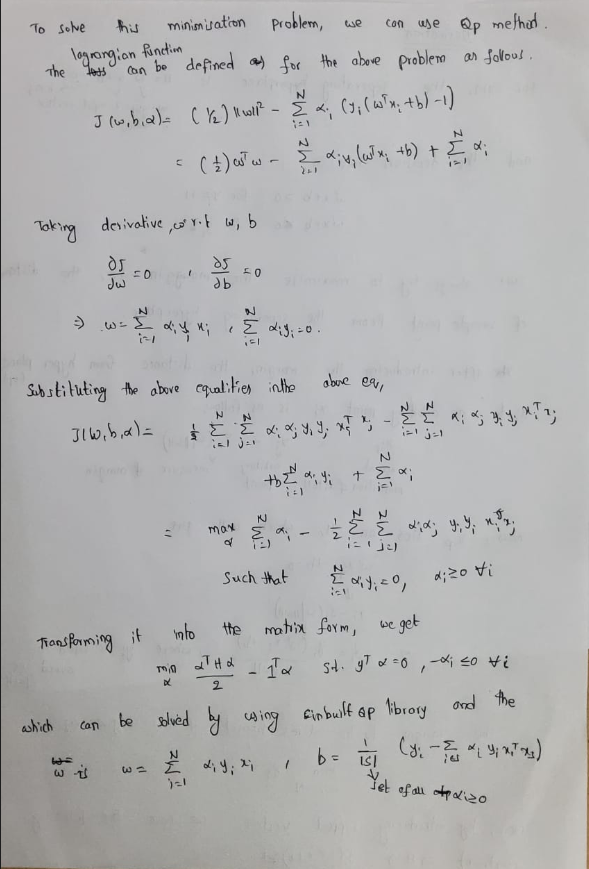 To solve this minimisation problem, we can use QP method.
The lagrangian function can be defined for the above problem as follows.
J(w,b,α) = (1/2) ||w||² - Σ_{i=1}^{N} α_i (y_i(w^T x_i + b) - 1)
= (1/2) w^T w - Σ_{i=1}^{N} α_i y_i (w^T x_i + b) + Σ_{i=1}^{N} α_i
Taking derivative, w.r.t w, b
∂J/∂w = 0 , ∂J/∂b = 0
⇒ w = Σ_{i=1}^{N} α_i y_i x_i , Σ_{i=1}^{N} α_i y_i = 0.
Substituting the above equalities in the above eq,
J(w,b,α) = 1/2 Σ_{i=1}^{N} Σ_{j=1}^{N} α_i α_j y_i y_j x_i^T x_j - Σ_{i=1}^{N} Σ_{j=1}^{N} α_i α_j y_i y_j x_i^T x_j
+b Σ_{i=1}^{N} α_i y_i + Σ_{i=1}^{N} α_i
= max_α Σ_{i=1}^{N} α_i - 1/2 Σ_{i=1}^{N} Σ_{j=1}^{N} α_i α_j y_i y_j x_i^T x_j
Such that Σ_{i=1}^{N} α_i y_i = 0, α_i ≥ 0 ∀i
Transforming it into the matrix form, we get
min_α α^T H α / 2 - 1^T α st. y^T α = 0 , -α_i ≤ 0 ∀i
which can be solved by using inbuilt QP library and the
w is w = Σ_{j=1}^{N} α_i y_i x_i , b = 1/|S| (y_i - Σ_{i∈S} α_i y_i x_i^T x_j)
Set of all α_i ≥ 0